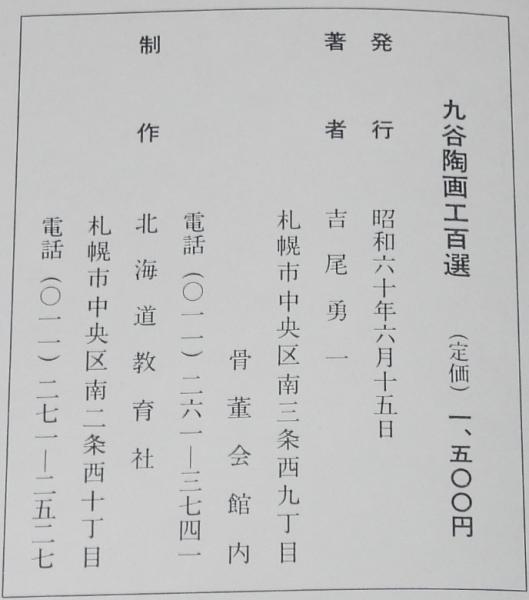 九谷陶画工百選 （定価）一、五〇〇円
発行 昭和六十年六月十五日
著者 吉尾勇一
札幌市中央区南三条西九丁目
骨董会館内
電話（〇一一）二六一―三七四一
制作 北海道教育社
札幌市中央区南二条西十丁目
電話（〇一一）二七一―二五二七